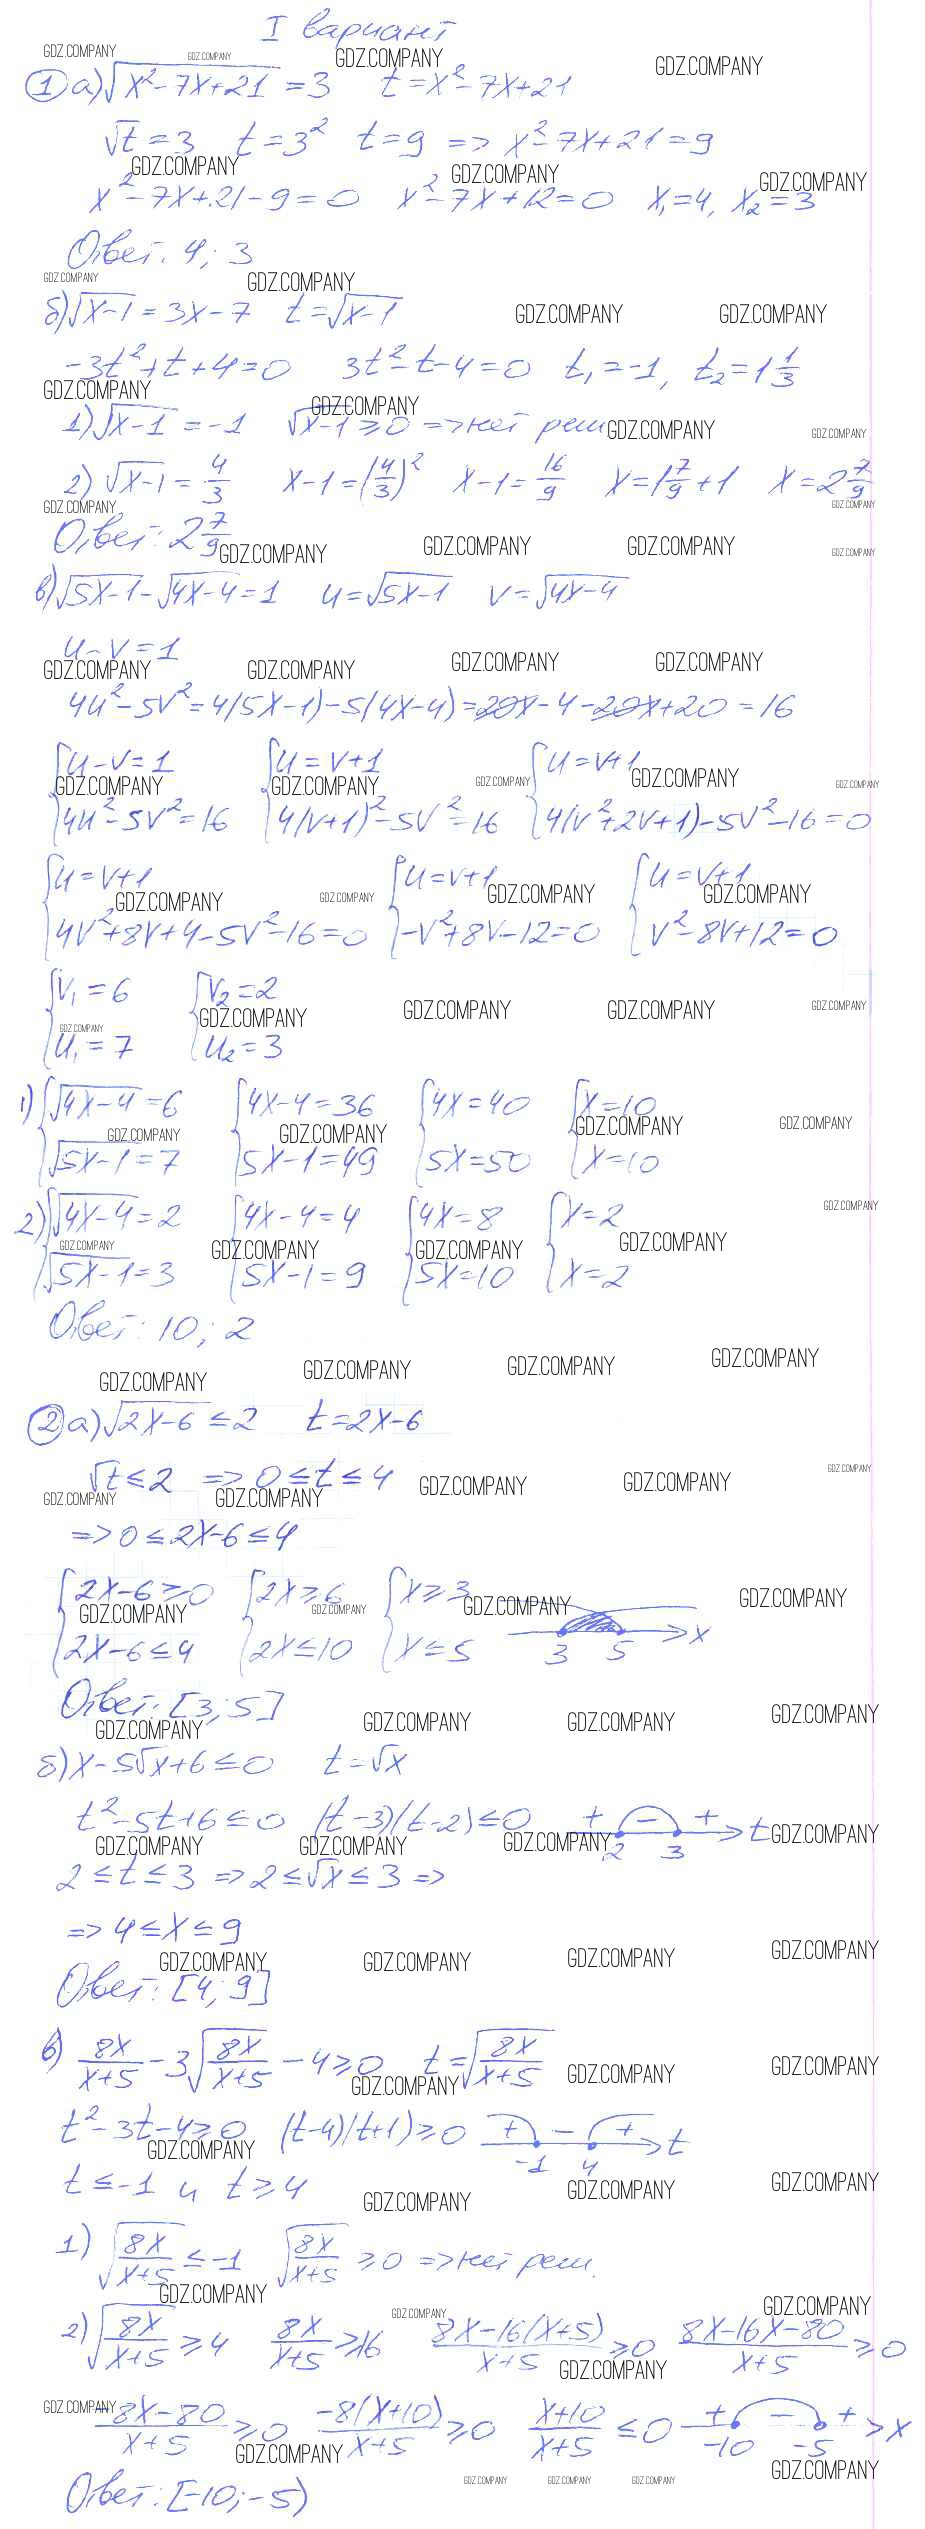 I вариант
① а) √(x²-7x+21) = 3 t = x²-7x+21
√t = 3 t = 3² t = 9 => x²-7x+21 = 9
x²-7x+21-9 = 0 x²-7x+12 = 0 x₁ = 4, x₂ = 3
Ответ: 4; 3
б) √(x-1) = 3x-7 t = √(x-1)
-3t²+t+4 = 0 3t²-t-4 = 0 t₁ = -1, t₂ = 1 1/3
1) √(x-1) = -1 √(x-1) ≥ 0 => нет реш.
2) √(x-1) = 4/3 x-1 = (4/3)² x-1 = 16/9 x = 1 7/9 + 1 x = 2 7/9
Ответ: 2 7/9
в) √(5x-1) - √(4x-4) = 1 u = √(5x-1) v = √(4x-4)
u-v = 1
4u²-5v² = 4(5x-1)-5(4x-4) = 20x-4-20x+20 = 16
{u-v = 1 {u = v+1 {u = v+1
{4u²-5v² = 16 {4(v+1)²-5v² = 16 {4(v²+2v+1)-5v²-16 = 0
{u = v+1 {u = v+1 {u = v+1
{4v²+8v+4-5v²-16 = 0 {-v²+8v-12 = 0 {v²-8v+12 = 0
{v₁ = 6 {v₂ = 2
{u₁ = 7 {u₂ = 3
1) {√(4x-4) = 6 {4x-4 = 36 {4x = 40 {x = 10
{√(5x-1) = 7 {5x-1 = 49 {5x = 50 {x = 10
2) {√(4x-4) = 2 {4x-4 = 4 {4x = 8 {x = 2
{√(5x-1) = 3 {5x-1 = 9 {5x = 10 {x = 2
Ответ: 10; 2
② а) √(2x-6) ≤ 2 t = 2x-6
√t ≤ 2 => 0 ≤ t ≤ 4
=> 0 ≤ 2x-6 ≤ 4
{2x-6 ≥ 0 {2x ≥ 6 {x ≥ 3
{2x-6 ≤ 4 {2x ≤ 10 {x ≤ 5 3 5 x
Ответ: [3; 5]
б) x-5√x+6 ≤ 0 t = √x
t²-5t+6 ≤ 0 (t-3)(t-2) ≤ 0 + - + 2 3 t
2 ≤ t ≤ 3 => 2 ≤ √x ≤ 3 =>
=> 4 ≤ x ≤ 9
Ответ: [4; 9]
в) 8x/(x+5) - 3√(8x/(x+5)) - 4 ≥ 0 t = √(8x/(x+5))
t²-3t-4 ≥ 0 (t-4)(t+1) ≥ 0 + - + -1 4 t
t ≤ -1 и t ≥ 4
1) √(8x/(x+5)) ≤ -1 √(8x/(x+5)) ≥ 0 => нет реш.
2) √(8x/(x+5)) ≥ 4 8x/(x+5) ≥ 16 (8x-16(x+5))/(x+5) ≥ 0 (8x-16x-80)/(x+5) ≥ 0
(-8x-80)/(x+5) ≥ 0 -8(x+10)/(x+5) ≥ 0 (x+10)/(x+5) ≤ 0 + - + -10 -5 x
Ответ: [-10; -5)
GDZ.COMPANY